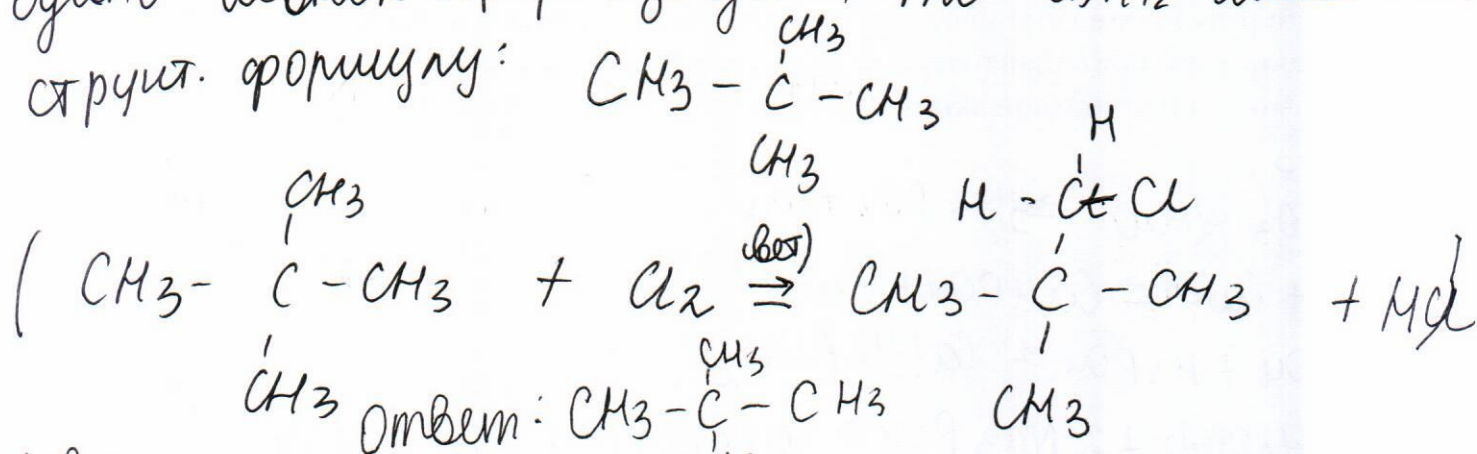 структ. формулу:
CH3
CH3 – C – CH3
CH3
H
H – C – Cl
CH3
( CH3 – C – CH3 + Cl2 свет) ⇒ CH3 – C – CH3 + HCl )
CH3
CH3
Ответ: CH3 – C – CH3
CH3